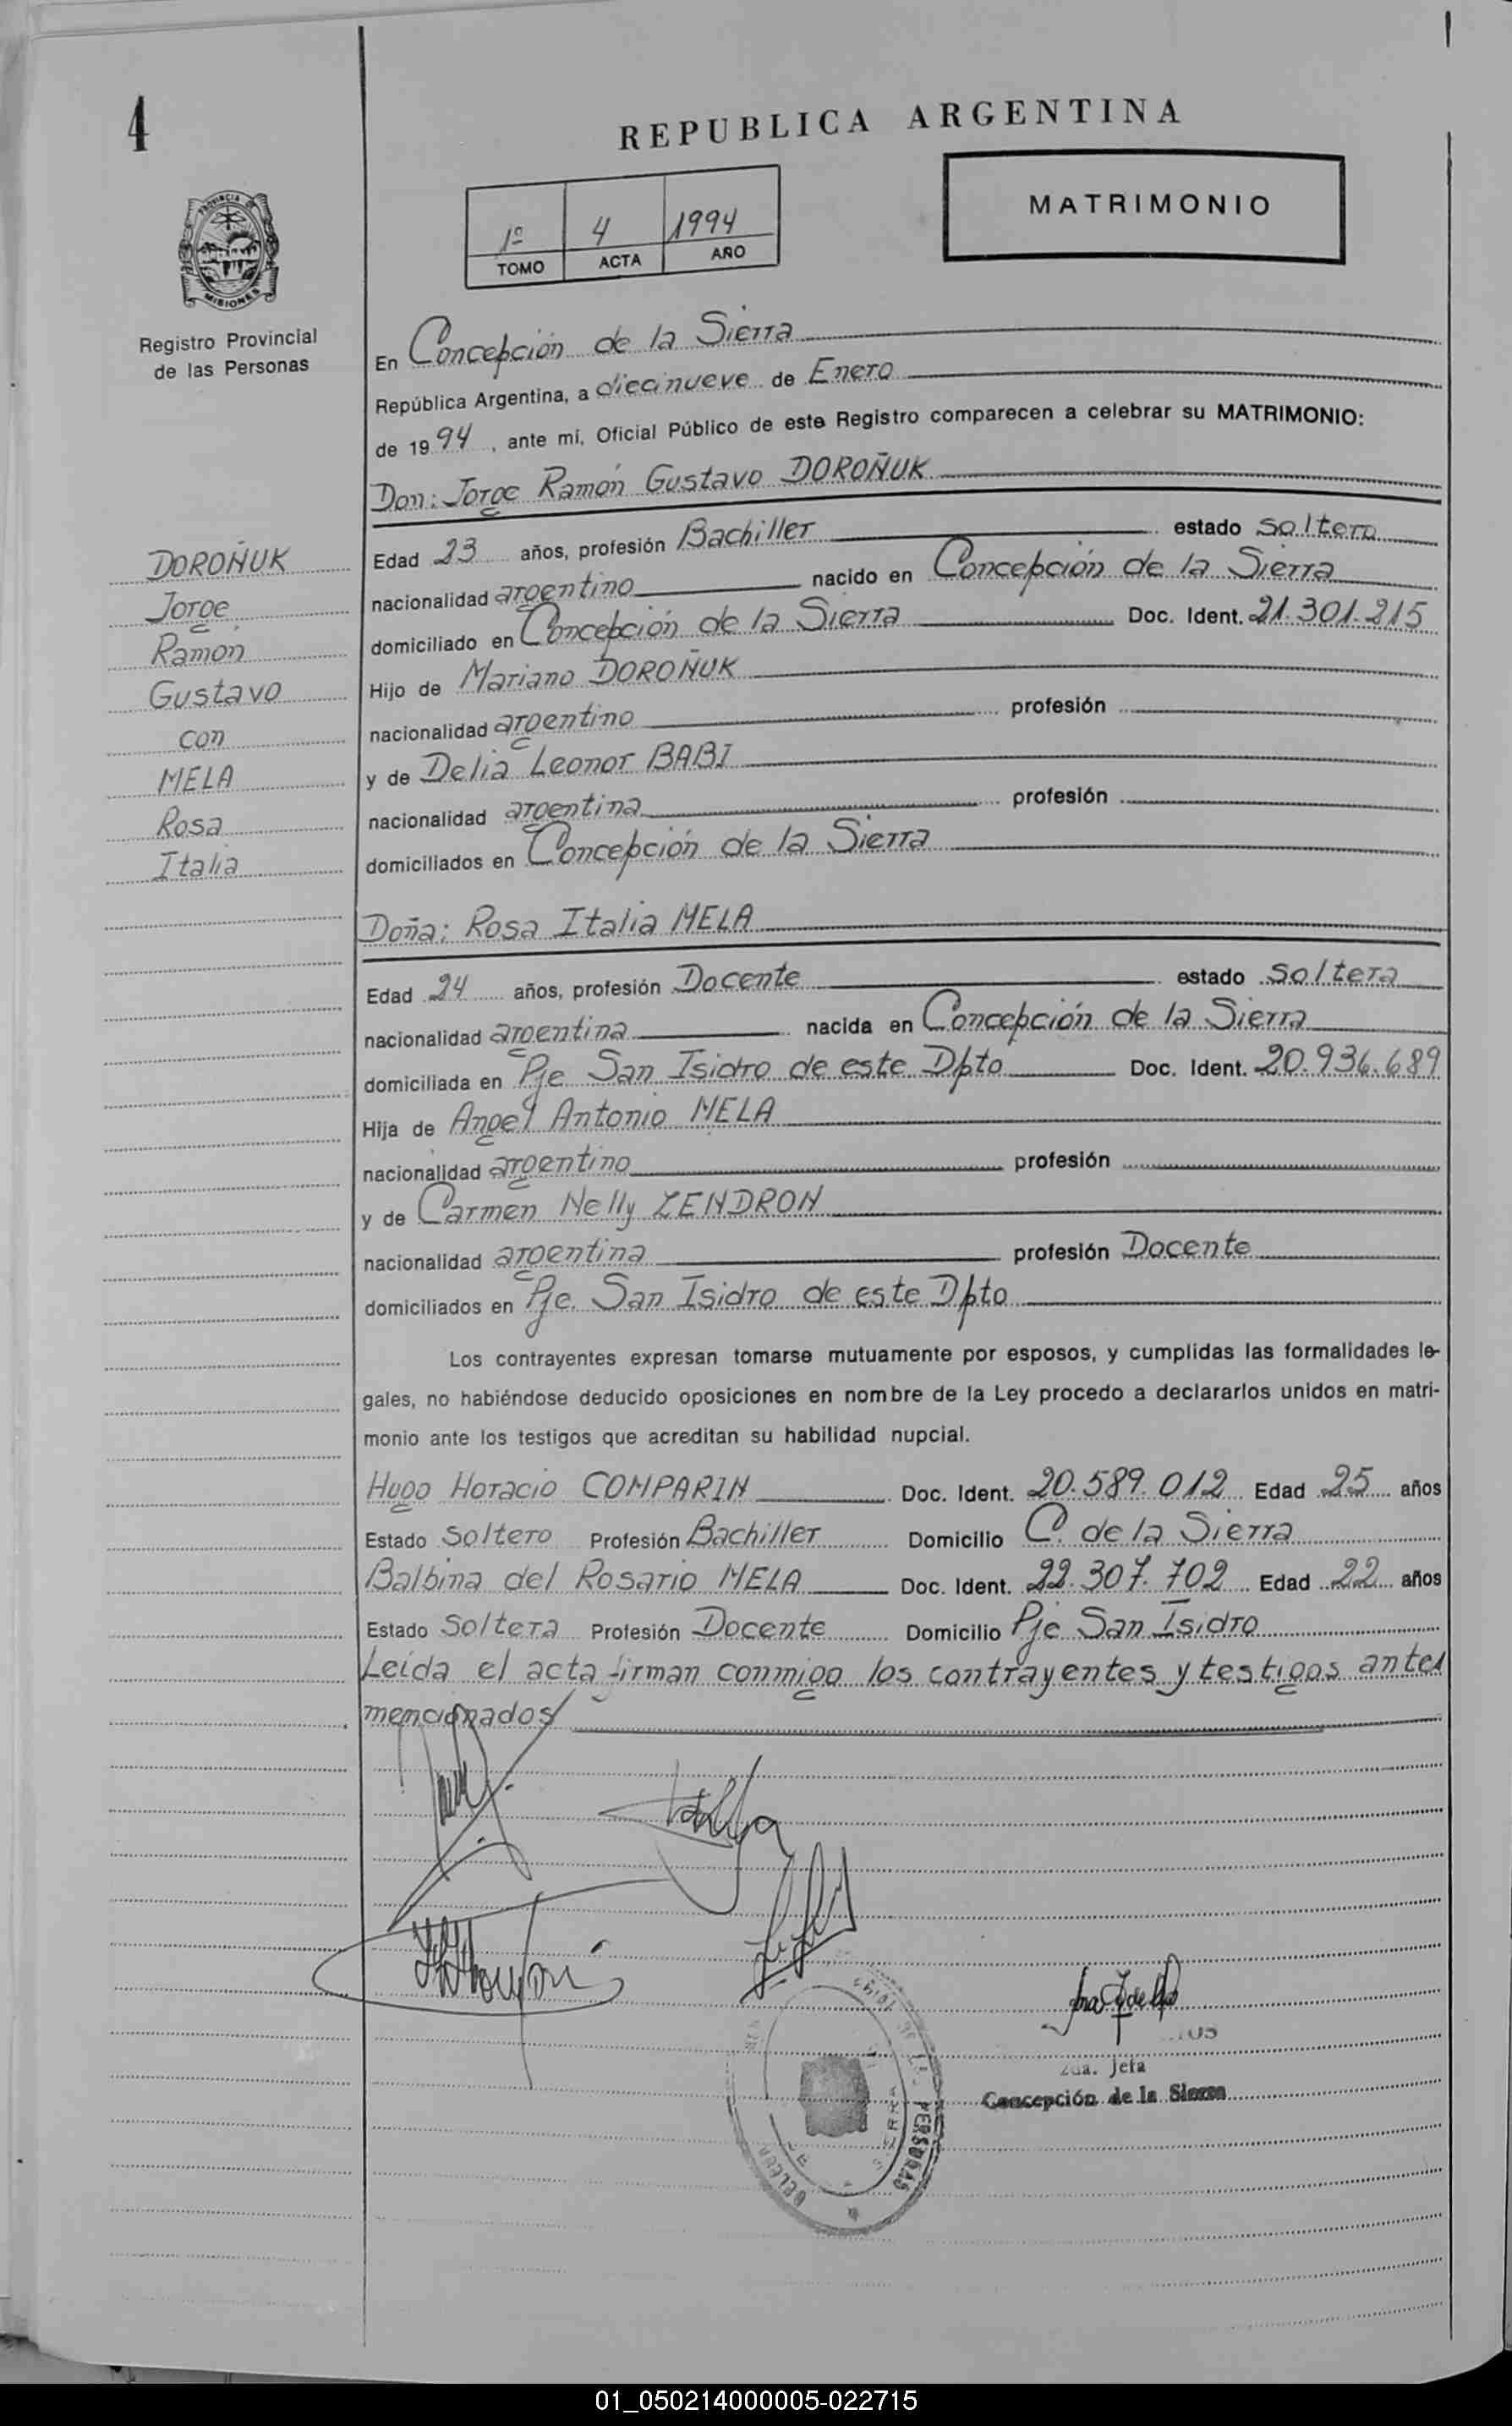 4
REPUBLICA ARGENTINA
MATRIMONIO
1º 4 1994
TOMO ACTA AÑO
PROVINCIA DE
MISIONES
Registro Provincial
de las Personas
En Concepción de la Sierra
República Argentina, a diecinueve de Enero
de 1994, ante mí, Oficial Público de este Registro comparecen a celebrar su MATRIMONIO:
Don: Jorge Ramón Gustavo DOROÑUK
DOROÑUK
Jorge
Ramón
Gustavo
con
MELA
Rosa
Italia
Edad 23 años, profesión Bachiller estado soltero
nacionalidad argentino nacido en Concepción de la Sierra
domiciliado en Concepción de la Sierra Doc. Ident. 21.301.215
Hijo de Mariano DOROÑUK
nacionalidad argentino profesión
y de Delia Leonor BABI
nacionalidad argentina profesión
domiciliados en Concepción de la Sierra
Doña: Rosa Italia MELA
Edad 24 años, profesión Docente estado soltera
nacionalidad argentina nacida en Concepción de la Sierra
domiciliada en Pje San Isidro de este Dpto Doc. Ident. 20.936.689
Hija de Angel Antonio MELA
nacionalidad argentino profesión
y de Carmen Nelly ZENDRON
nacionalidad argentina profesión Docente
domiciliados en Pje. San Isidro de este Dpto
Los contrayentes expresan tomarse mutuamente por esposos, y cumplidas las formalidades le-
gales, no habiéndose deducido oposiciones en nombre de la Ley procedo a declararlos unidos en matri-
monio ante los testigos que acreditan su habilidad nupcial.
Hugo Horacio COMPARIN Doc. Ident. 20.589.012 Edad 25 años
Estado soltero Profesión Bachiller Domicilio C. de la Sierra
Balbina del Rosario MELA Doc. Ident. 22.307.702 Edad 22 años
Estado soltera Profesión Docente Domicilio Pje San Isidro
Leída el acta firman conmigo los contrayentes y testigos antes
mencionados
2da. Jefa
Concepción de la Sierra
PERSONAS
01_050214000005-022715